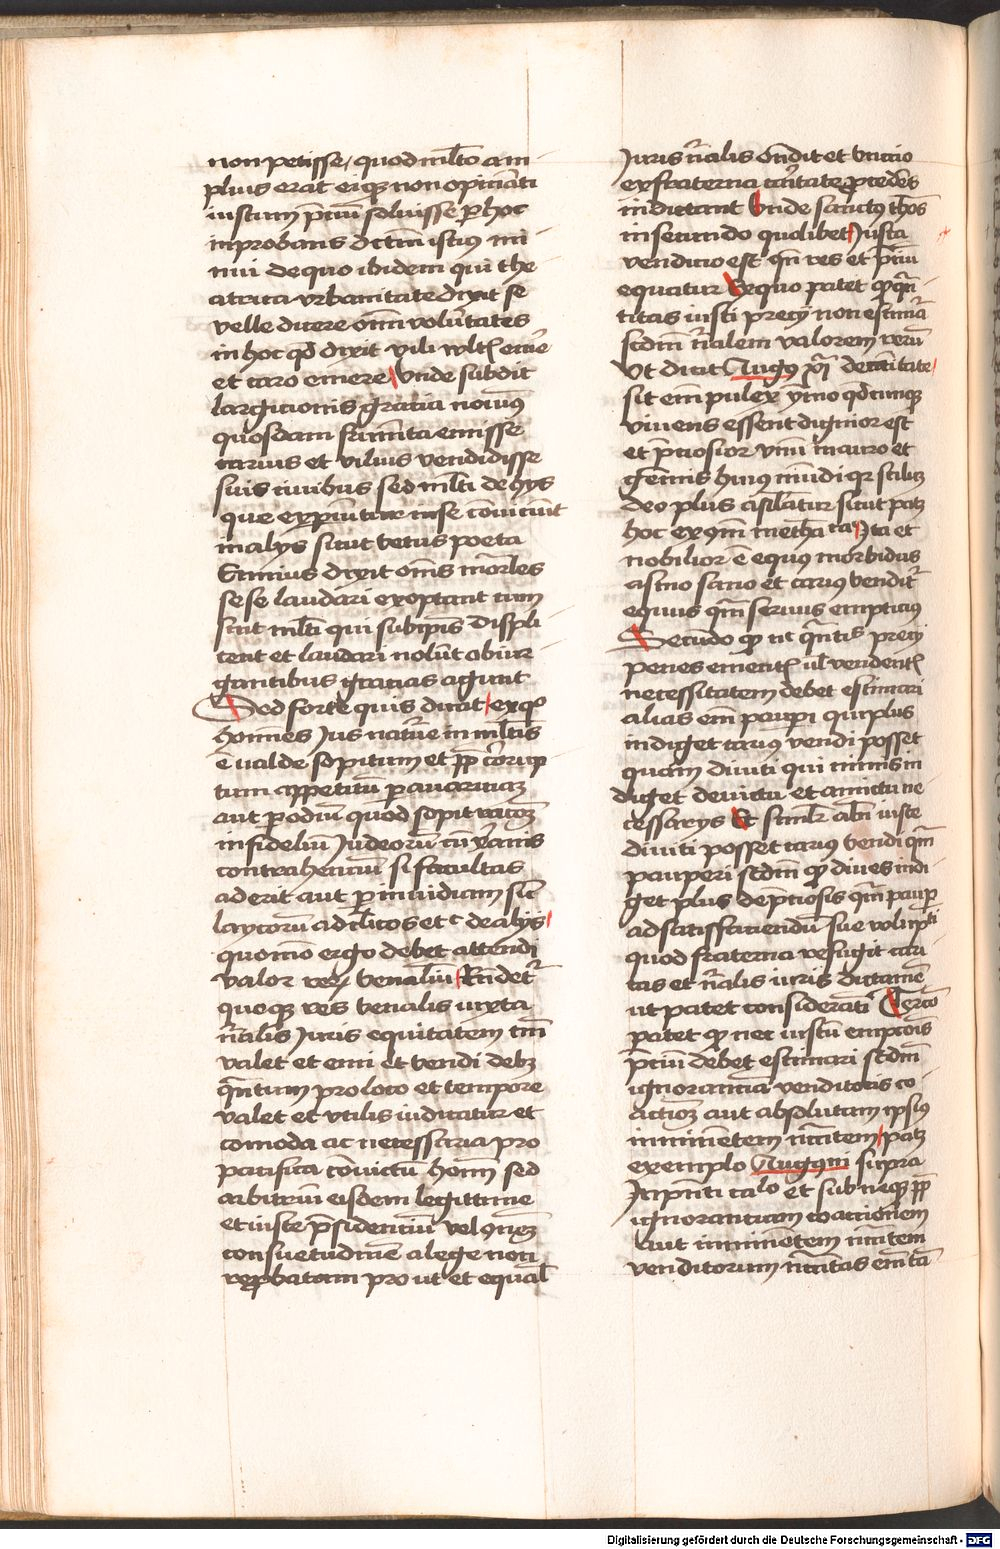 non petisse / quod ml̄to am
plius erat eiq; non opinanti
iustum p̄ciū soluisse p hoc
inprobans dictm̄ istius mi
mi de quo ibidem qui the
atrica vrbanitate dixit se
velle dicere om̄i volūtates
in hoc qd̄ dixit vili
et caro emere / Vnde subdit
largicionis gratia nouim9
quosdam frumēta emisse
carius et vilius vendidisse
suis ciuibus sed ml̄ti de hys
que exp̄mitur in se cōuicunt
in alys sicut vetus poeta
Ennius dixit om̄s mortales
sese laudari exoptant cum
sint ml̄ti qui sub ip̄is displi
cent et laudari nolūt obiur
gantibus gratias agunt
Sed forte quis dicat / ex quo
homines Jus nature in ml̄tis
ē valde sopitum et pp̄ corrup
tum appetitū p auariciam
aut p odium quod sopit
infidelium Judeorum cū xp̄ianis
contrahencium si facultas
aderit aut p inuidiam sic̄
laycorum ad cl̄icos etc de alys /
quomō ergo debet attendi
valor rerum venalium / Rn̄detr̄
quoq; res venalis iuxta
nr̄alis Juris equitatem tm̄
valet et emi et vendi debz
qn̄tum pro loco et tempore
valet et vtilis iudicatur et
comoda ac necessaria pro
pacifica cōuictū hom̄ sed
arbitrium eisdem legittime
et iuste p̄sidencium vel
consuetudinē a lege non
rep̱batam pro ut et equal
Juris nr̄alis on̄dit et vnicio
ex fraterna caritate pcedēs
indictant Vnde sanctus thōs
in secundo quolibet / Justa
vendicio est qn̄ res et p̄ciū
equatur Ex quo patet qd qn̄
titas iusti precij non estimatr̄
scd̄m nr̄alem valorem rerū
Vt dicit Aug9 xi de ciuitate /
sit em̄ pulex ymo qd̄cumq;
viuens essent dignior est
et p̄ciosior vniu9 mauro et
gēmis huius mūdi qr scilicz
deo plus assilatur sicut patz
hoc ex 9m̄ metha ca / Jta et
nobilior ē equus morbidus
asino sano et carius venditr̄
equus qm̄ seruus empticius
Secūdo qd nec qn̄titas precij
penes ementis vl vendentis
necessitatem debet estimari
alias em̄ paupi qui plus
indiget carius vendi posset
quam diuiti qui minus in
diget de victu et amictu ne
cessarys Et similiter alicui iuste
diuiti posset carius vendi qm̄
pauperi scd̄m qd diues indi
get plus de p̄ciosis qm̄ paup
ad satisfaciendū sue volūpti
quod fraterna refugit cari
tas et nr̄alis iuris dictamē
ut patet consideranti Tercio
patet qd nec iustū empcōis
p̄ciū debet estimari scd̄m
ignoranciā venditoris co
actionē aut absolutam ipsius
imminētem nc̄citatem / patz
exemplo Augustini supra
Jn p̄nti calo et sub neq; pp̄
ignoranciam coaccionem
aut imminētem nc̄citatem
venditorum
Digitalisierung gefördert durch die Deutsche Forschungsgemeinschaft - DFG